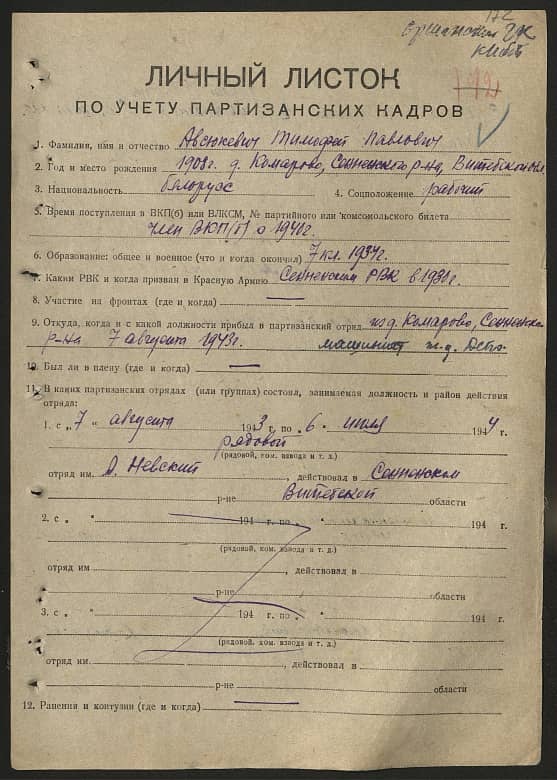 172
ЛИЧНЫЙ ЛИСТОК
192
ПО УЧЕТУ ПАРТИЗАНСКИХ КАДРОВ
1. Фамилия, имя и отчество Авсюкевич Тимофей Павлович
2. Год и место рождения 1908 г. д. Комарово, Сенненского р-на, Витебской обл.
3. Национальность белорус 4. Соцположение рабочий
5. Время поступления в ВКП(б) или ВЛКСМ, № партийного или комсомольского билета
член ВКП(б) с 1940 г.
6. Образование: общее и военное (что и когда окончил) 7 кл. 1934 г.
7. Каким РВК и когда призван в Красную Армию Сенненским РВК в 1930 г.
8. Участие на фронтах (где и когда) —
9. Откуда, когда и с какой должности прибыл в партизанский отряд из д. Комарово, Сенненск.
р-на 7 августа 1943 г. машинист ж.д. депо
10. Был ли в плену (где и когда) —
11. В каких партизанских отрядах (или группах) состоял, занимаемая должность и район действия
отряда:
1. с „ 7 “ августа 1943 г. по „ 6 “ июля 1944 г.
рядовой
(рядовой, ком. взвода и т. д.)
отряд им. А. Невский, действовал в Сенненском
р-не Витебской области
2. с „ “ 194 г. по „ “ 194 г.
(рядовой, ком. взвода и т. д.)
отряд им , действовал в
р-не области
3. с „ “ 194 г. по „ “ 194 г.
(рядовой, ком. взвода и т. д.)
отряд им. , действовал в
р-не области
12. Ранения и контузии (где и когда) —